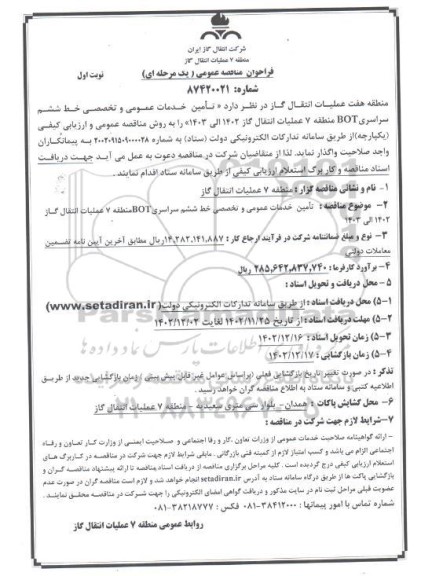 شرکت انتقال گاز ایران
منطقه ۷ عملیات انتقال گاز
فراخوان مناقصه عمومی ( یک مرحله ای )
نوبت اول
شماره: ۸۷۴۲۰۰۲۱
منطقه هفت عملیات انتقال گاز در نظر دارد « تأمین خدمات عمومی و تخصصی خط ششم
سراسری BOT منطقه ۷ عملیات انتقال گاز ۱۴۰۲ الی ۱۴۰۳» را به روش مناقصه عمومی و ارزیابی کیفی
(یکپارچه)از طریق سامانه تدارکات الکترونیکی دولت (ستاد) به شماره ۲۰۰۲۰۹۱۵۰۹۰۰۰۰۲۸ به پیمانکاران
واجد صلاحیت واگذار نماید. لذا از متقاضیان شرکت در مناقصه دعوت به عمل می آید جهت دریافت
اسناد مناقصه و کاربرگ استعلام ارزیابی کیفی از طریق سامانه ستاد اقدام نمایند .
۱- نام و نشانی مناقصه گزار: منطقه ۷ عملیات انتقال گاز
۲- موضوع مناقصه : تأمین خدمات عمومی و تخصصی خط ششم سراسری BOTمنطقه ۷ عملیات انتقال گاز
۱۴۰۲ الی ۱۴۰۳
۳- نوع و مبلغ ضمانتنامه شرکت در فرآیند ارجاع کار : ۱۴,۲۸۲,۱۴۱,۸۸۷ریال مطابق آخرین آیین نامه تضمین
معاملات دولتی
۴- برآورد کارفرما: ۲۸۵,۶۴۲,۸۳۷,۷۴۰ ریال
۵- محل دریافت و تحویل اسناد :
۵-۱) محل دریافت اسناد : از طریق سامانه تدارکات الکترونیکی دولت( www.setadiran.ir)
۵-۲) مهلت دریافت اسناد : از تاریخ ۱۴۰۲/۱۱/۲۵ لغایت ۱۴۰۲/۱۲/۰۲
۵-۳) زمان تحویل اسناد : ۱۴۰۲/۱۲/۱۶
۵-۴) زمان بازگشایی : ۱۴۰۲/۱۲/۱۷
تذکر : در صورت تغییر تاریخ بازگشایی فعلی (براساس عوامل غیر قابل پیش بینی ) زمان بازگشایی جدید از طریق
اطلاعیه کتبی و سامانه ستاد به اطلاع مناقصه گران خواهد رسید.
۶- محل گشایش پاکات : همدان- بلوار سی متری سعیدیه - منطقه ۷ عملیات انتقال گاز
۷-شرایط لازم جهت شرکت در مناقصه :
- ارائه گواهینامه صلاحیت خدمات عمومی از وزارت تعاون ،کار و رفاه اجتماعی و صلاحیت ایمنی از وزارت کار تعاون و رفاه
اجتماعی الزام می باشد و کسب امتیاز لازم از کمیته فنی بازرگانی . مابقی شرایط لازم جهت شرکت در مناقصه در کاربرگ های
استعلام ارزیابی کیفی درج گردیده است. کلیه مراحل برگزاری مناقصه از دریافت اسناد مناقصه تا ارائه پیشنهاد مناقصه گران و
بازگشایی پاکت ها از طریق درگاه سامانه ستاد به آدرس setadiran.ir انجام خواهد شد و لازم است مناقصه گران در صورت عدم
عضویت قبلی مراحل ثبت نام در سایت مذکور و دریافت گواهی امضای الکترونیکی را جهت شرکت در مناقصه محقق نمایند .
شماره تماس با امور پیمانها : ۳۸۴۱۲۰۰۰-۰۸۱ فکس : ۳۸۲۱۸۷۷۷-۰۸۱
روابط عمومی منطقه ۷ عملیات انتقال گاز